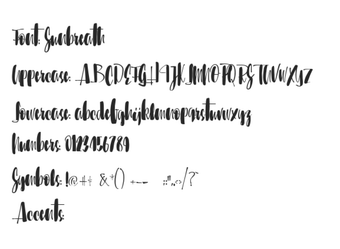 Font: Sunbreath
Uppercase: ABCDEFGHIJKLMNOPQRSTUVWXYZ
Lowercase: abcdefghijklmnopqrstuvwxyz
Numbers: 0123456789
Symbols: !@#$ &*()
Accents: